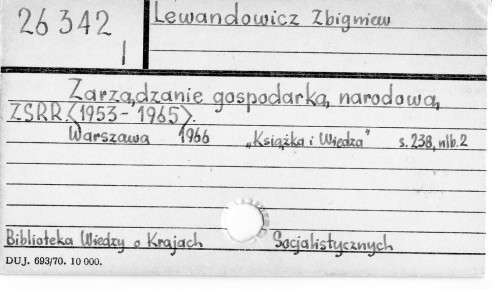 26342
I
Lewandowicz Zbigniew
Zarządzanie gospodarką narodową
ZSRR <1953-1965>.
Warszawa 1966 „Książka i Wiedza" s. 238, nlb. 2
Biblioteka Wiedzy o Krajach Socjalistycznych
DUJ. 693/70. 10 000.